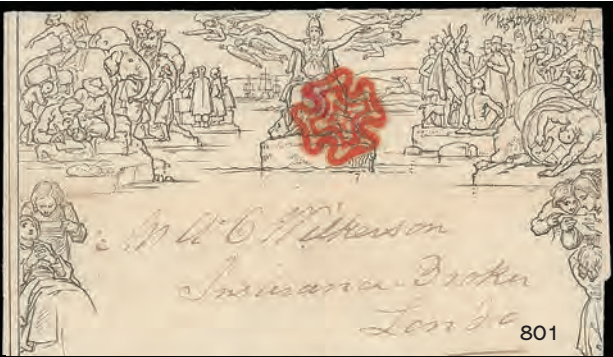 Wilkinson
Insurance Broker
London
801